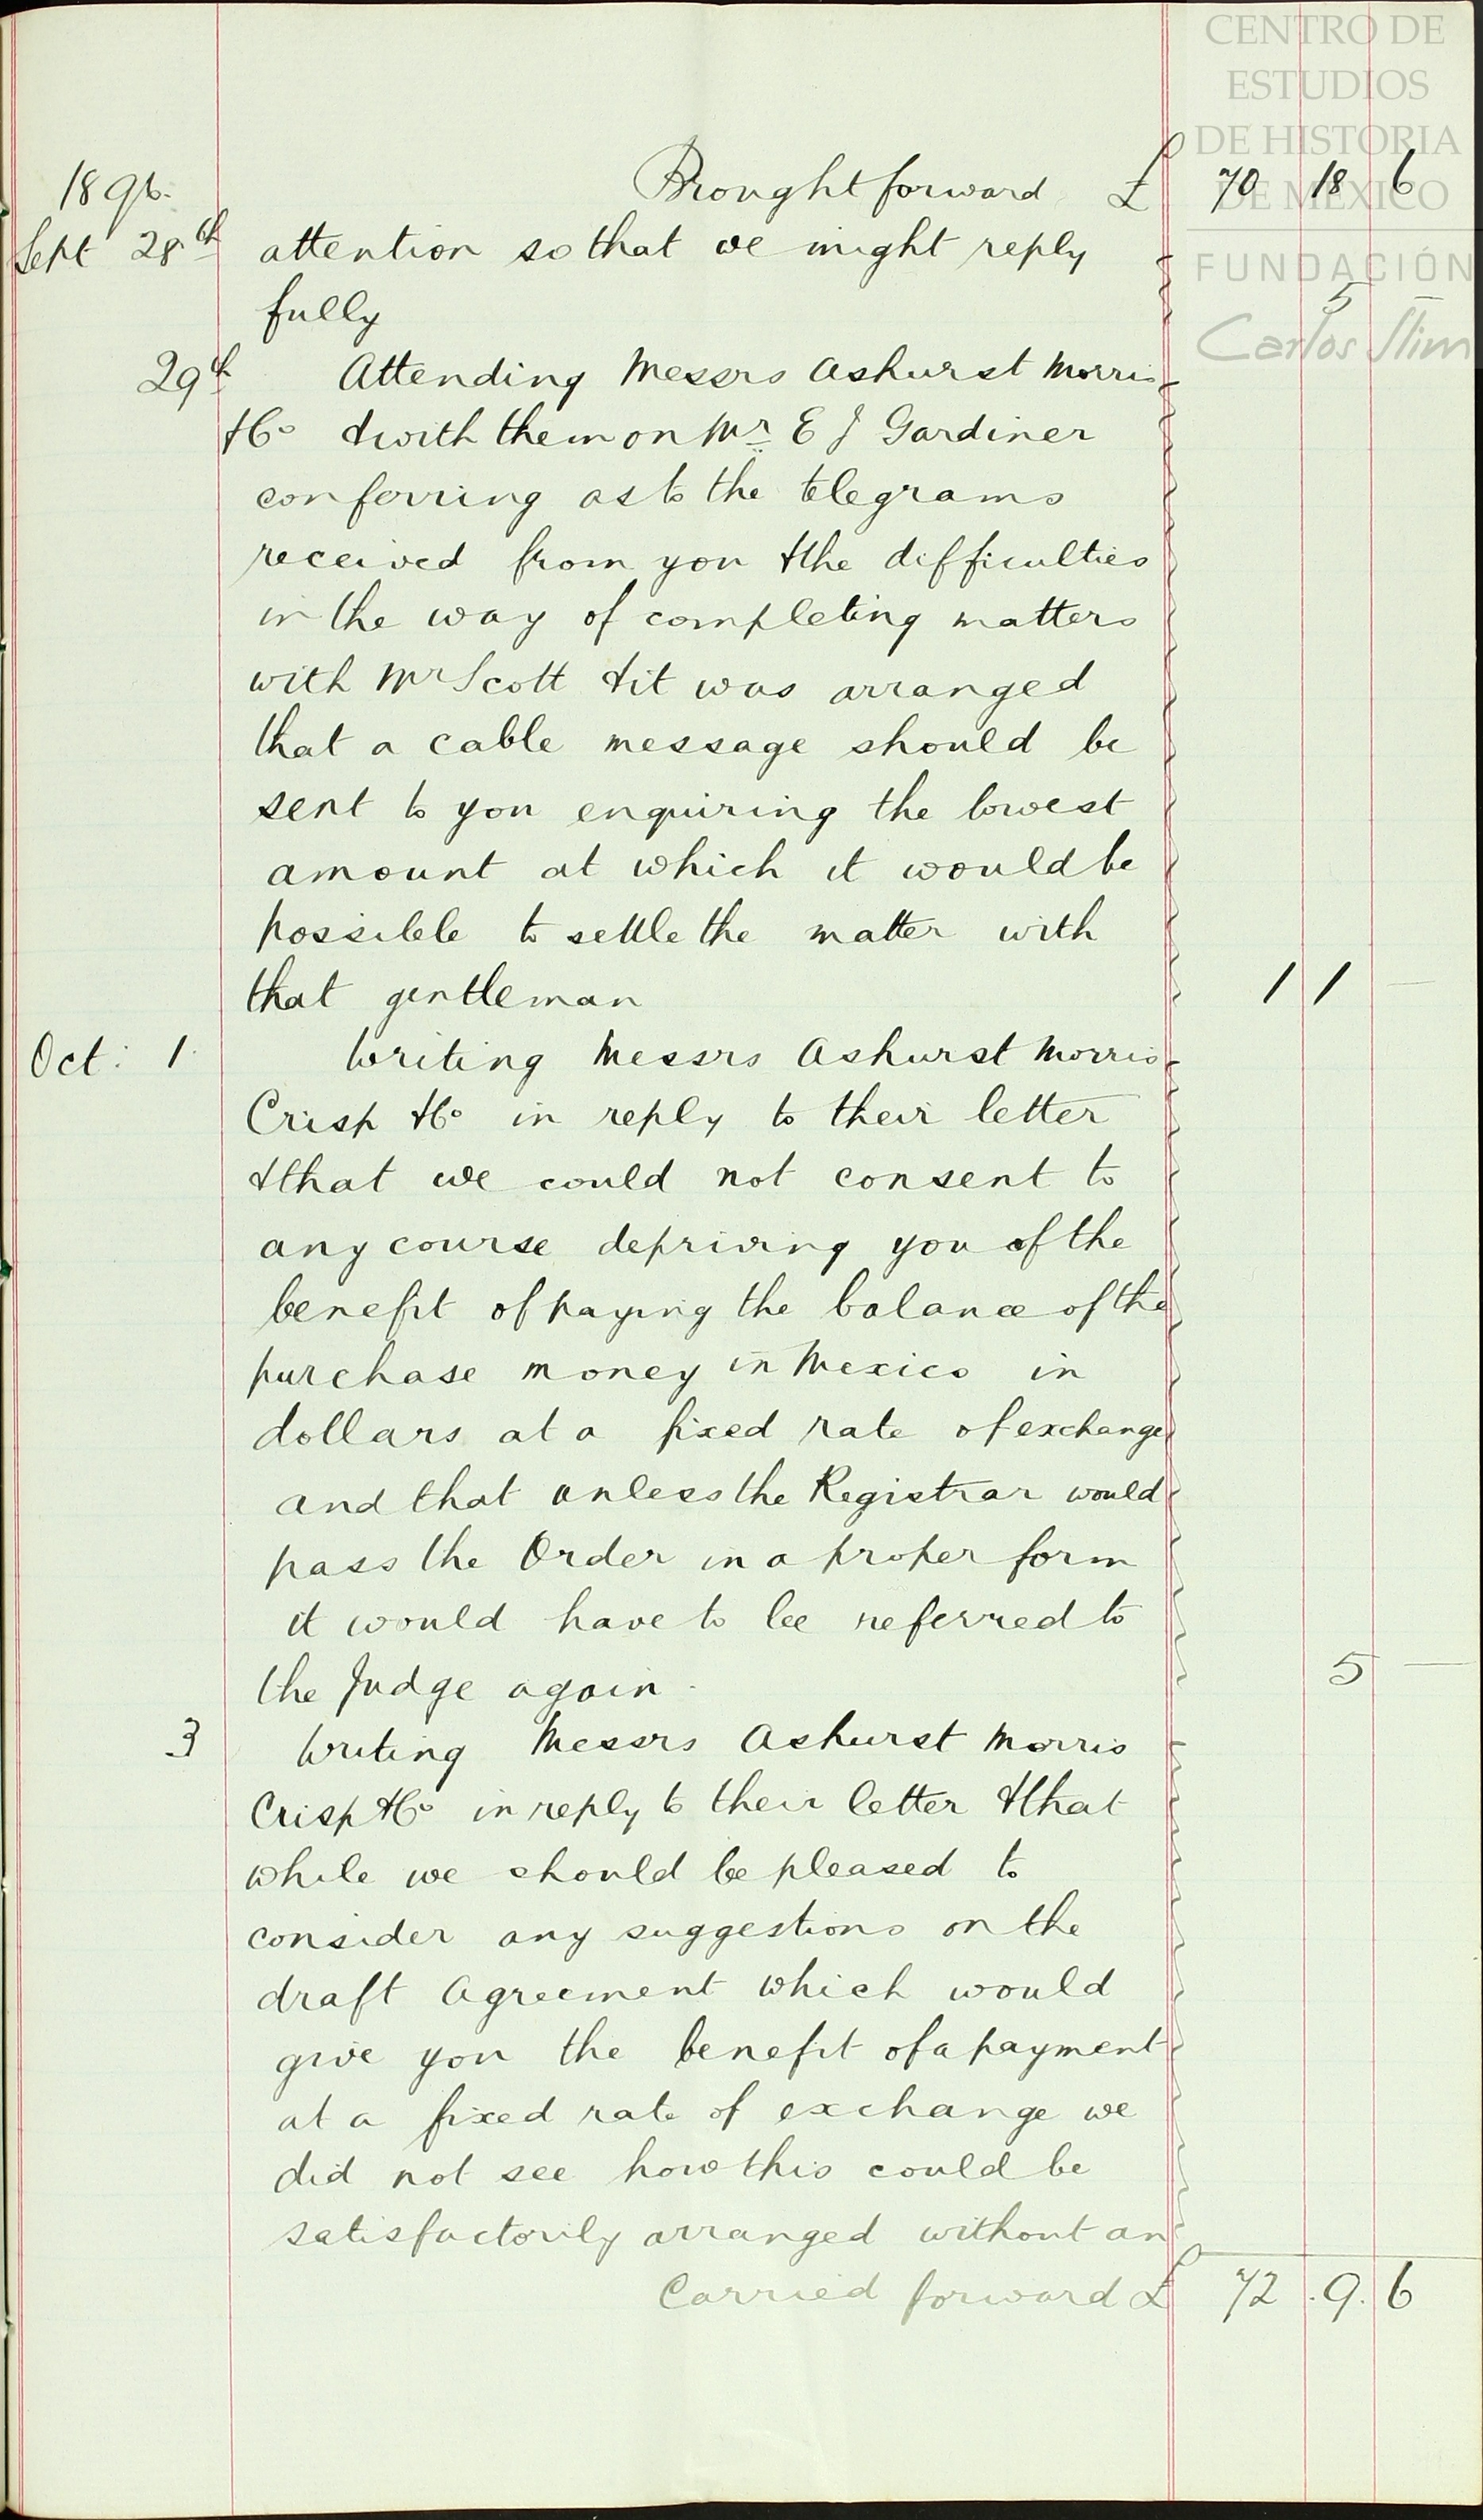 CENTRO DE
ESTUDIOS
DE HISTORIA
DE MÉXICO
FUNDACIÓN
Carlos Slim
1896. Brought forward £ 70 18 6
Sept 28th attention so that we might reply
fully 5 —
29th Attending Messrs Ashurst Morris
& Co & with them on Mr E J Gardiner
conferring as to the telegrams
received from you & the difficulties
in the way of completing matters
with Mr Scott & it was arranged
that a cable message should be
sent to you enquiring the lowest
amount at which it would be
possible to settle the matter with
that gentleman 1 1 —
Oct: 1. Writing Messrs Ashurst Morris
Crisp & Co in reply to their letter
& that we could not consent to
any course depriving you of the
benefit of paying the balance of the
purchase money in Mexico in
dollars at a fixed rate of exchange
and that unless the Registrar would
pass the Order in a proper form
it would have to be referred to
the Judge again. 5 —
3 Writing Messrs Ashurst Morris
Crisp & Co in reply to their letter & that
while we should be pleased to
consider any suggestions on the
draft Agreement which would
give you the benefit of a payment
at a fixed rate of exchange we
did not see how this could be
satisfactorily arranged without an
Carried forward £ 72 . 9 . 6